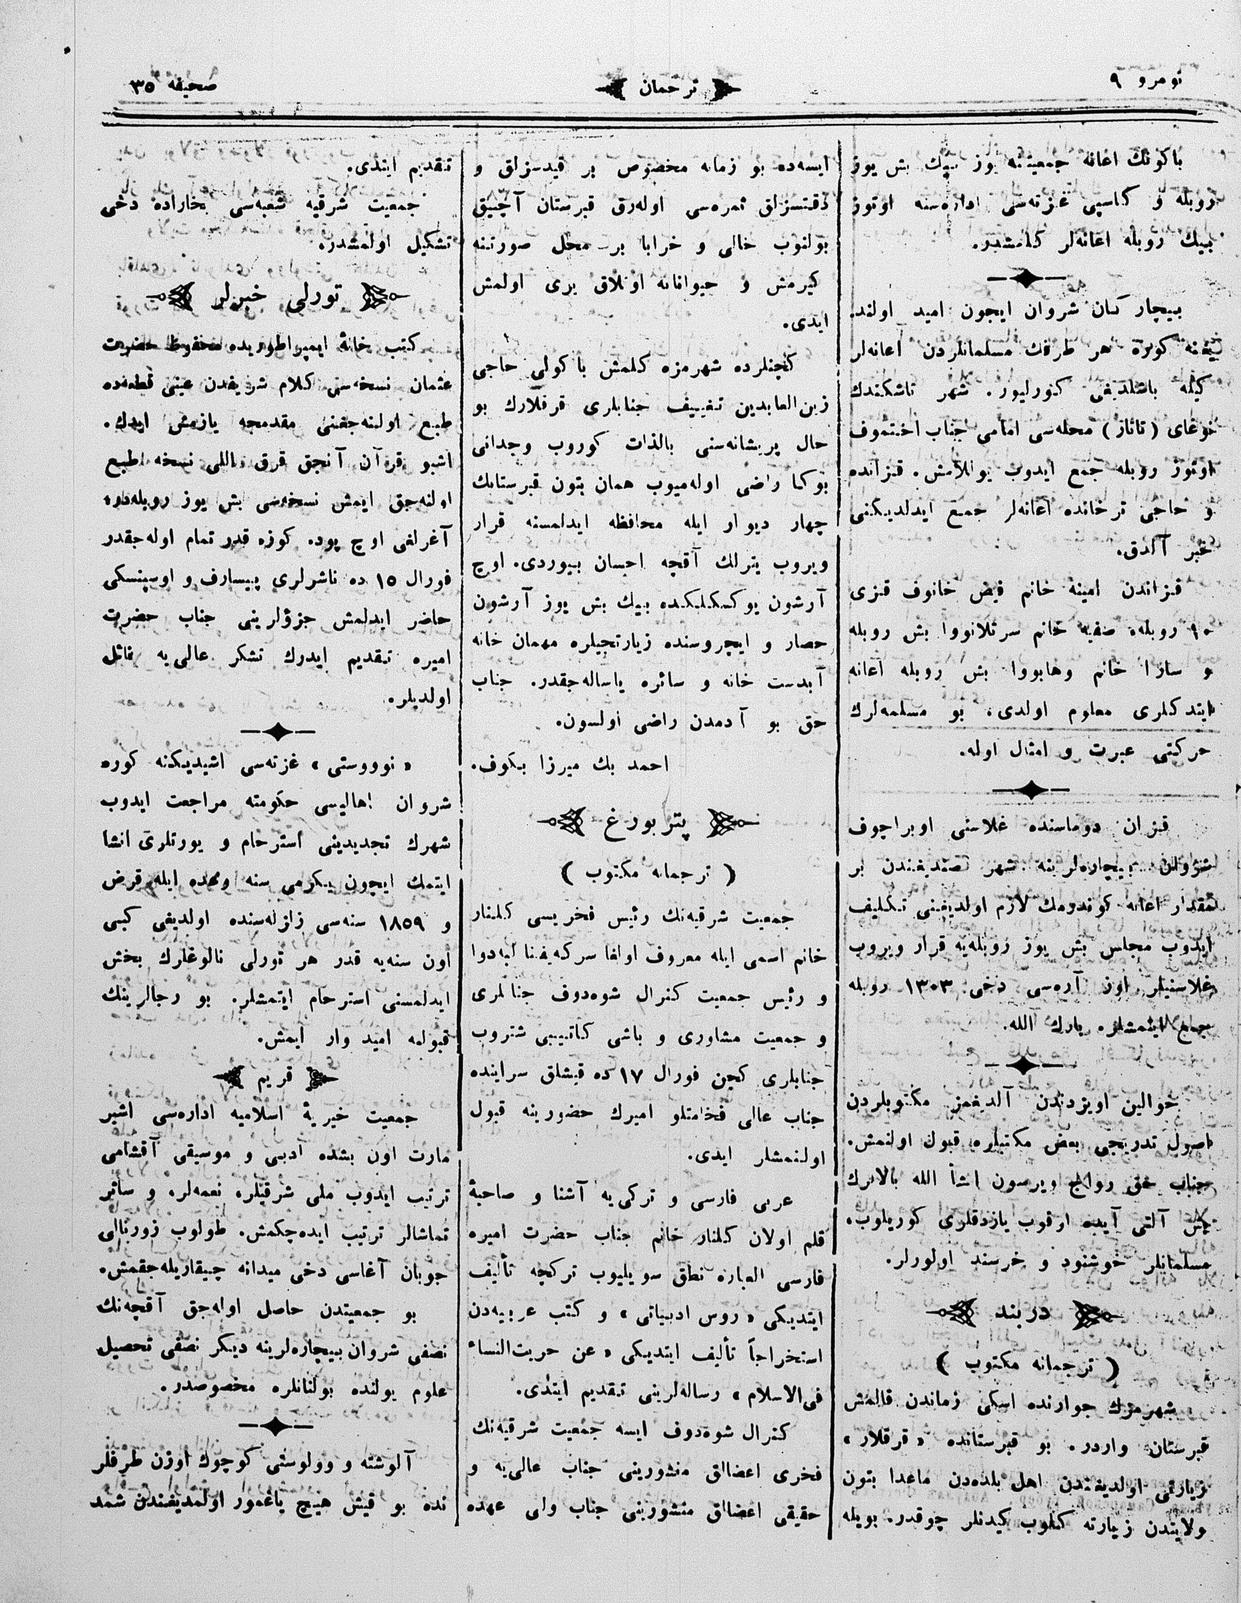 نومرو ٩
ترجمان
صحيفه ٣٥
باكونك اعانه جمعيتنه يوز بيك بش يوز
روبله و كاسپى غزته‌سى اداره‌سنه اوتوز
بيك روبله اعانه‌لر كلمشدر.
بيچاركان شروان ايچون اميد اولند
يغنه كوره هر طرفك مسلمانلردن اعانه‌لر
كيله باشلديغى كورليور. شهر تاشكندك
نوغاى (تاتار) محله‌سى امامى جناب اختموف
اوتوز روبله جمع ايدوب يوللامش. قزانده
و حاجى ترخانده اعانه‌لر جمع ايدلديكنى
خبر آلدق.
قزاندن امينه خانم فيض خانوف قزى
١٠ روبله، صفيه خانم سرتلانووا بش روبله
و سارا خانم وهابووا بش روبله اعانه
ايتدكلرى معلوم اولدى. بو مسلمه‌لرك
حركتى عبرت و امثال اوله.
قزان دوماسنده غلاسنى اوبراچوف
شروان بيچاره‌لرينه شهر صندیغندن بر
مقدار اعانه كوندرمك لازم اولديغينى تكليف
ايدوب مجلس بش يوز روبله‌يه قرار ويروب
غلاسنيلر اوز آره‌سى دخى ١٣٠٣ روبله
جمع ايتمشلر. بارك الله.
خوالين اويزدندن آلديغمز مكتوبلردن
اصول تدريجى بعض مكتبلره قبول اولنمش.
جناب حق رواج ويرسون انشأ الله بالالرك
بش آلتى آيده اوقوب يازدقلرى كوريلوب.
مسلمانلر خوشنود و خرسند اولورلر.
دربند
(ترجمانه مكتوب)
شهرمزك جوارنده اسكى زماندن قالمش
قبرستان واردر. بو قبرستانده «قرقلار»
زيارتى اولديغندن اهل بلده‌دن ماعدا بتون
ولايتدن زيارته كلوب كيدنلر چوقدر. بويله
ايسه‌ده بو زمانه مخصوص بر قيدسزلق و
دقتسزلق ثمره‌سى اوله‌رق قبرستان آچيق
بولنوب خالى و خرابا بر محل صورتنه
كيرمش و حيوانانه اوتلاق يرى اولمش
ايدى.
كچنلرده شهرمزه كلمش باكولى حاجى
زين‌العابدين تغييف جنابلرى قرقلارك بو
حال پريشانه‌سنى بالذات كوروب وجدانى
بوكا راضى اوله‌ميوب همان بتون قبرستانك
چهار ديوار ايله محافظه ايدلمسنه قرار
ويروب يترلك آقچه احسان بيوردى. اوچ
آرشون يوكسكلكده بيك بش يوز آرشون
حصار و ايچروسنده زيارتجيلره مهمان خانه
آبدست خانه و سائره ياساله‌جقدر. جناب
حق بو آدمدن راضى اولسون.
احمد بك ميرزا بكوف.
پتربورغ
(ترجمانه مكتوب)
جمعيت شرقيه‌نك رئيس فخريسى كلنار
خانم اسمى ايله معروف اولغا سركه‌يفنا ليه‌دوا
و رئيس جمعيت كنرال شوه‌دوف جنابلرى
و جمعيت مشاورى و باشى كاتيبى شتروب
جنابلرى كچن فورال ١٧ ده قيشلق سراينده
جناب عالى فخامتلو اميرك حضورينه قبول
اولنمشلر ايدى.
عربى فارسى و تركى‌يه آشنا و صاحبۀ
قلم اولان كلنار خانم جناب حضرت اميره
فارسى العباره نطق سويليوب تركچه تأليف
ايتديكى «روس ادبياتى» و كتب عربيه‌دن
استخراجاً تأليف ايتديكى «عن حريت‌النساء
فى‌الاسلام» رساله‌لرينى تقديم ايتدى.
كنرال شوه‌دوف ايسه جمعيت شرقيه‌نك
فخرى اعضالق منشورينى جناب عالى‌يه و
حقيقى اعضالق منشورينى جناب ولى عهده
تقديم ايتدى.
جمعيت شرقيه شعبه‌سى بخاراده دخى
تشكيل اولمشدر.
تورلى خبرلر
كتب خانۀ ايمپراطوريده محفوظ حضرت
عثمان نسخه‌سى كلام شريفدن عينى قطعه‌ده
طبع اولنه‌جغنى مقدمجه يازمش ايدك.
اشبو قرآن آنجق قرق اللى نسخه طبع
اولنه‌جق ايمش نسخه‌سى بش يوز روبله‌در،
آغرلغى اوچ پود. كوزه قدر تمام اوله‌جقدر
فورال ١٥ ده ناشرلرى پيسارف و اوسپنسكى
حاضر ايدلمش جزؤلرينى جناب حضرت
اميره تقديم ايدرك تشكر عالى‌يه نائل
اولديلر.
«نوووستى» غزته‌سى اشيديكنه كوره
شروان اهاليسى حكومته مراجعت ايدوب
شهرك تجديدينى استرحام و يورتلرى انشا
ايتمك ايچون يكرمى سنه وعده ايله قرض
و ١٨٥٩ سنه‌سى زلزله‌سنده اولديغى كبى
اون سنه‌يه قدر هر تورلى نالوغلرك بخش
ايدلمسنى استرحام ايتمشلر. بو رجالرينك
قبولمه اميد وار ايمش.
قريم
جمعيت خيريۀ اسلاميه اداره‌سى اشبر
مارت اون بشده آدبى و موسيقى آقشامى
ترتيب ايدوب ملى شرقيلر، نغمه‌لر، و سائر
تماشالر ترتيب ايده‌جكمش. طولوب زورنالى
جوبان آغاسى دخى ميدانه چيقاريله‌جقمش.
بو جمعيتدن حاصل اوله‌جق آقچه‌نك
نصفى شروان بيچاره‌لرينه ديكر نصفى تحصيل
علوم يولنده بولنانلره مخصوصدر.
آلوشته و وولوستى كوچوك اوزن طرفلر
نده بو قيش هيچ ياغمور اولمديغندن شمد